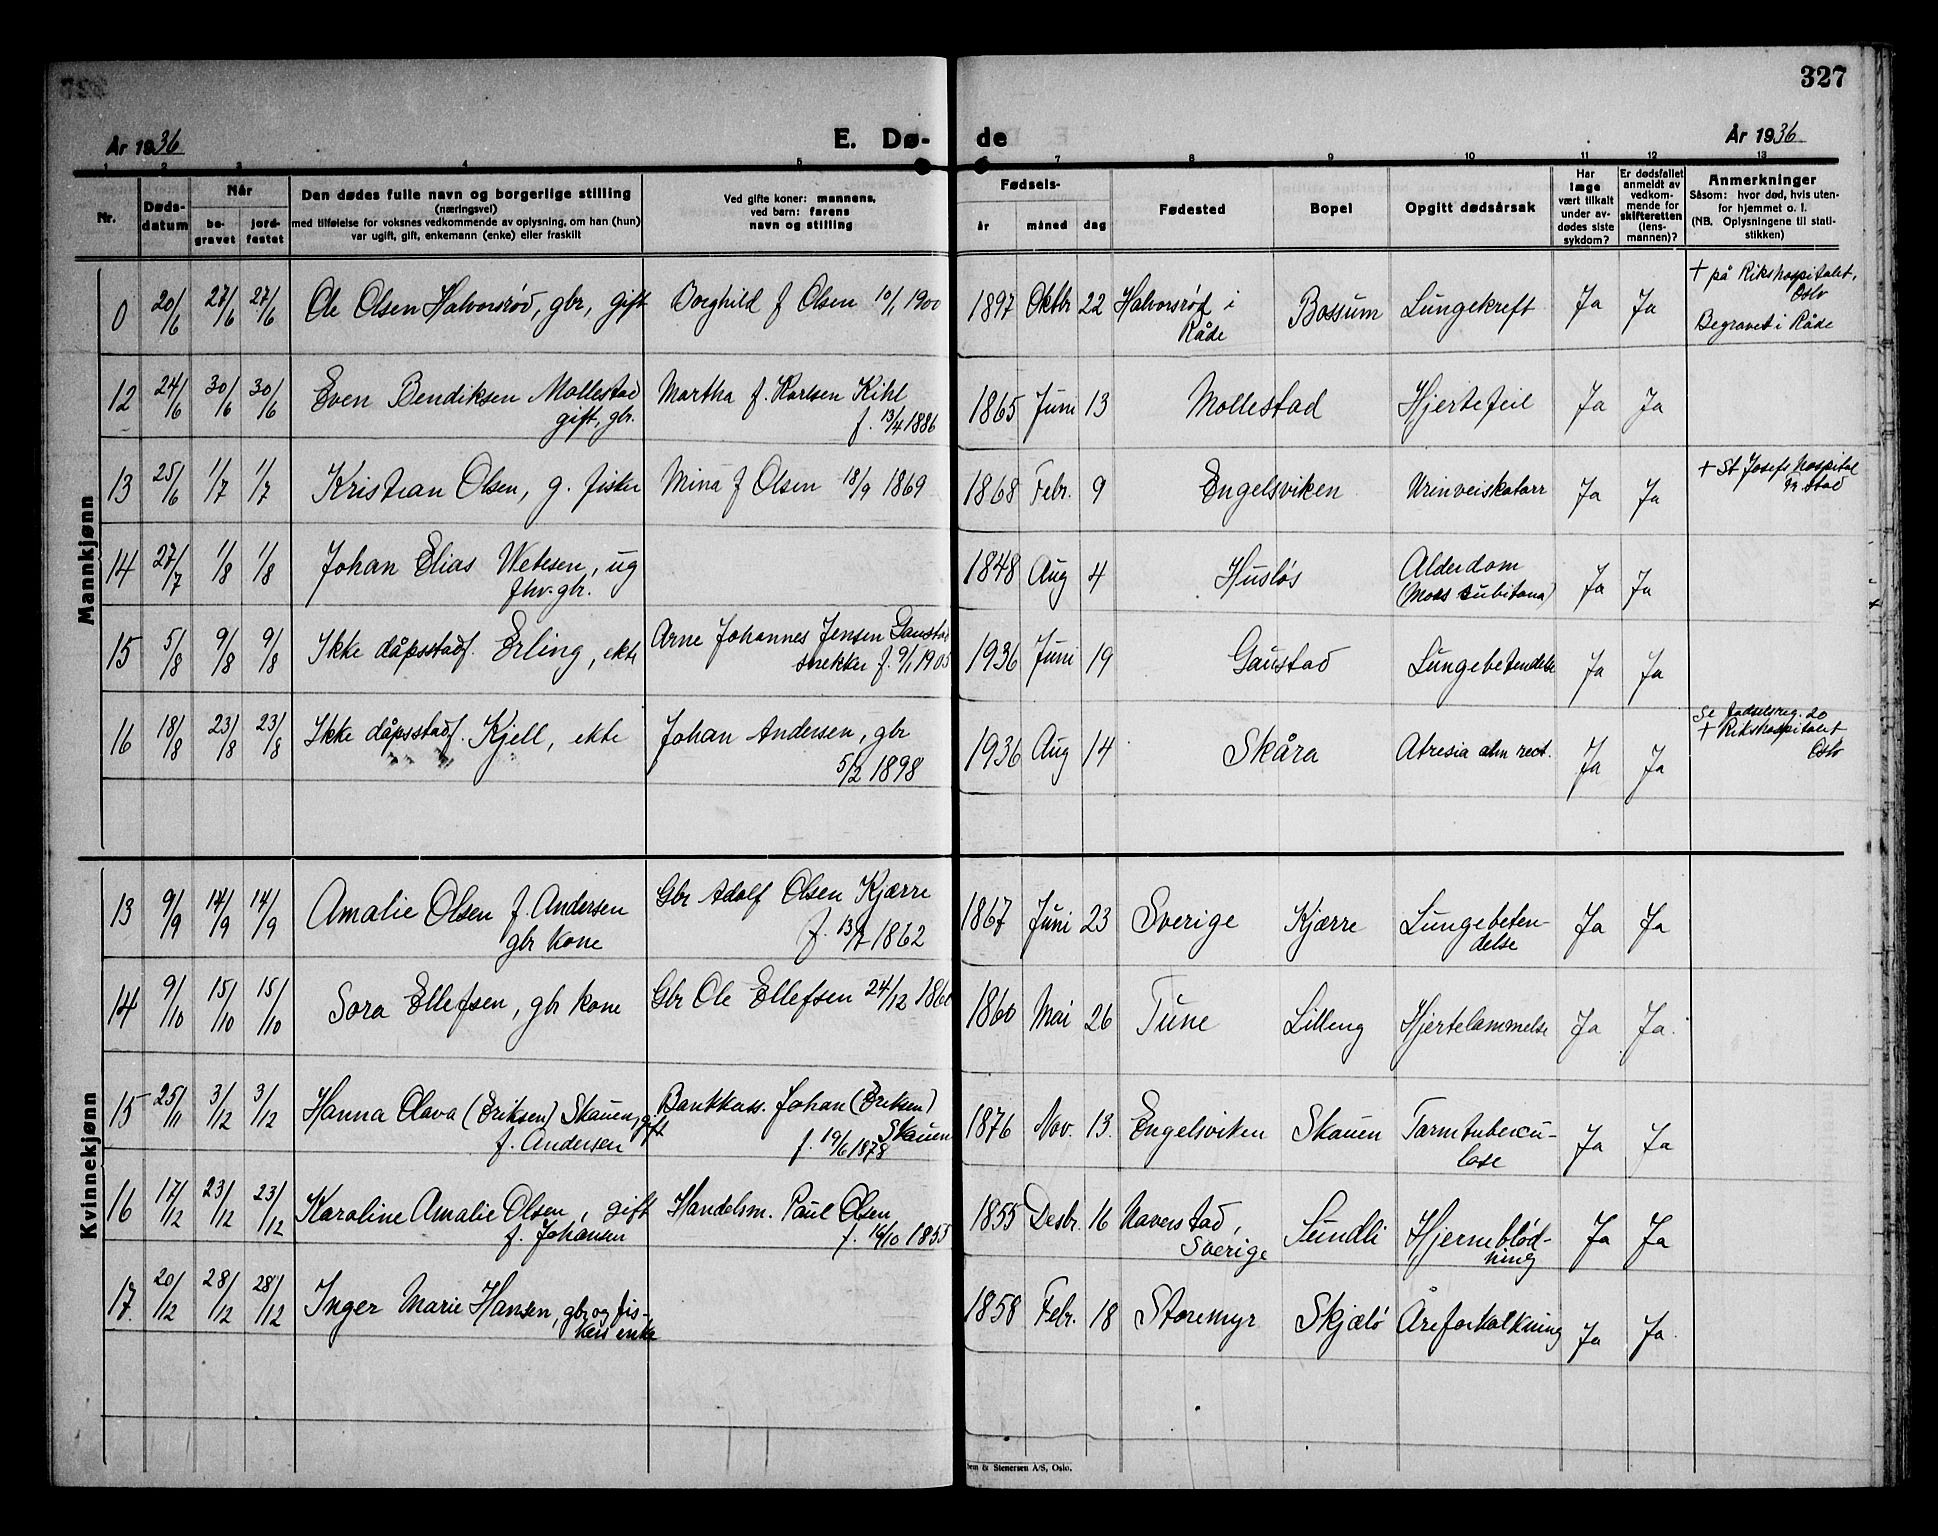 327
År 1936
E. Dø-
de
År 1936
1 2 3 4 5 6 7 8 9 10 11 12 13
Nr.
Døds-
datum
Når
be-
gravet
jord-
festet
Den dødes fulle navn og borgerlige stilling
(næringsvei)
med tilføielse for voksnes vedkommende av oplysning, om han (hun)
var ugift, gift, enkemann (enke) eller fraskilt
Ved gifte koner: mannens,
ved barn: farens
navn og stilling
Fødsels-
år måned dag
Fødested
Bopel
Opgitt dødsårsak
Har
læge
vært tilkalt
under av-
dødes siste
sykdom?
Er dødsfallet
anmeldt av
vedkom-
mende for
skifteretten
(lens-
mannen)?
Anmerkninger
Såsom: hvor død, hvis uten-
for hjemmet o. l.
(NB. Oplysningene til stati-
stikken)
Mannkjønn
0 20/6 27/6 27/6 Ole Olsen Halvorsrød, gbr, gift Borghild f Olsen 10/1 1900 1897 Oktbr 22 Halvorsrød i
Råde
Bossum Lungekreft Ja Ja + på Rikshospitalet,
Oslo
Begravet i Råde
12 24/6 30/6 30/6 Even Bendiksen Mollestad
gift, gbr.
Martha f. Karlsen Kihl
f. 13/4 1886
1865 Juni 13 Mollestad Hjertefeil Ja Ja
13 25/6 1/7 1/7 Kristian Olsen, g. fisker Mina f Olsen 18/9 1869 1868 Febr. 9 Engelsviken Urinveiskatarr Ja Ja + St Josefs hospital
Fr.stad
14 27/7 1/8 1/8 Johan Elias Webesen, ug
fhv. gbr.
1848 Aug 4 Husløs Alderdom
(Mors subitana)
Ja Ja
15 5/8 9/8 9/8 Ikke dåpsstadf. Erling, ekte Arne Johannes Jensen Gaustad
snekker f. 9/1 1905
1936 Juni 19 Gaustad Lungebetendelse Ja Ja
16 18/8 23/8 23/8 Ikke dåpsstadf. Kjell, ekte Johan Andersen, gbr
5/2 1898
1936 Aug 14 Skåra Atresia rect. Ja Ja Se fødselsreg. 20
+ Rikshospitalet
Oslo
Kvinnekjønn
13 9/9 14/9 14/9 Amalie Olsen f. Andersen
gbr kone
Gbr Adolf Olsen Kjærre
f. 13/7 1862
1867 Juni 23 Sverige Kjærre Lungebeten-
delse
Ja Ja
14 9/10 15/10 15/10 Sora Ellefsen, gbr kone Gbr Ole Ellefsen 24/12 1860 Mai 26 Tune Lilleng Hjertelammelse Ja Ja.
15 25/11 3/12 3/12 Hanna Olava (Eriksen) Skauen, gift
f. Andersen
Bankkass. Johan (Eriksen)
Skauen
f. 19/6 1878
1876 Nov. 13. Engelsviken Skauen Tarmtubercu-
lose
Ja Ja
16 17/12 23/12 23/12 Karoline Amalie Olsen, gift
f. Johansen
Handelsm. Paul Olsen
f. 16/10 1855
1855 Desbr. 16 Naverstad,
Sverige
Sundli Hjerneblød-
ning
Ja Ja
17. 20/12 28/12 28/12 Inger Marie Hansen, gbr og fis-
kers enke
1858 Febr. 18 Storemyr Skjælø Åreforkalkning Ja Ja.
& Stenersen A/S, Oslo.